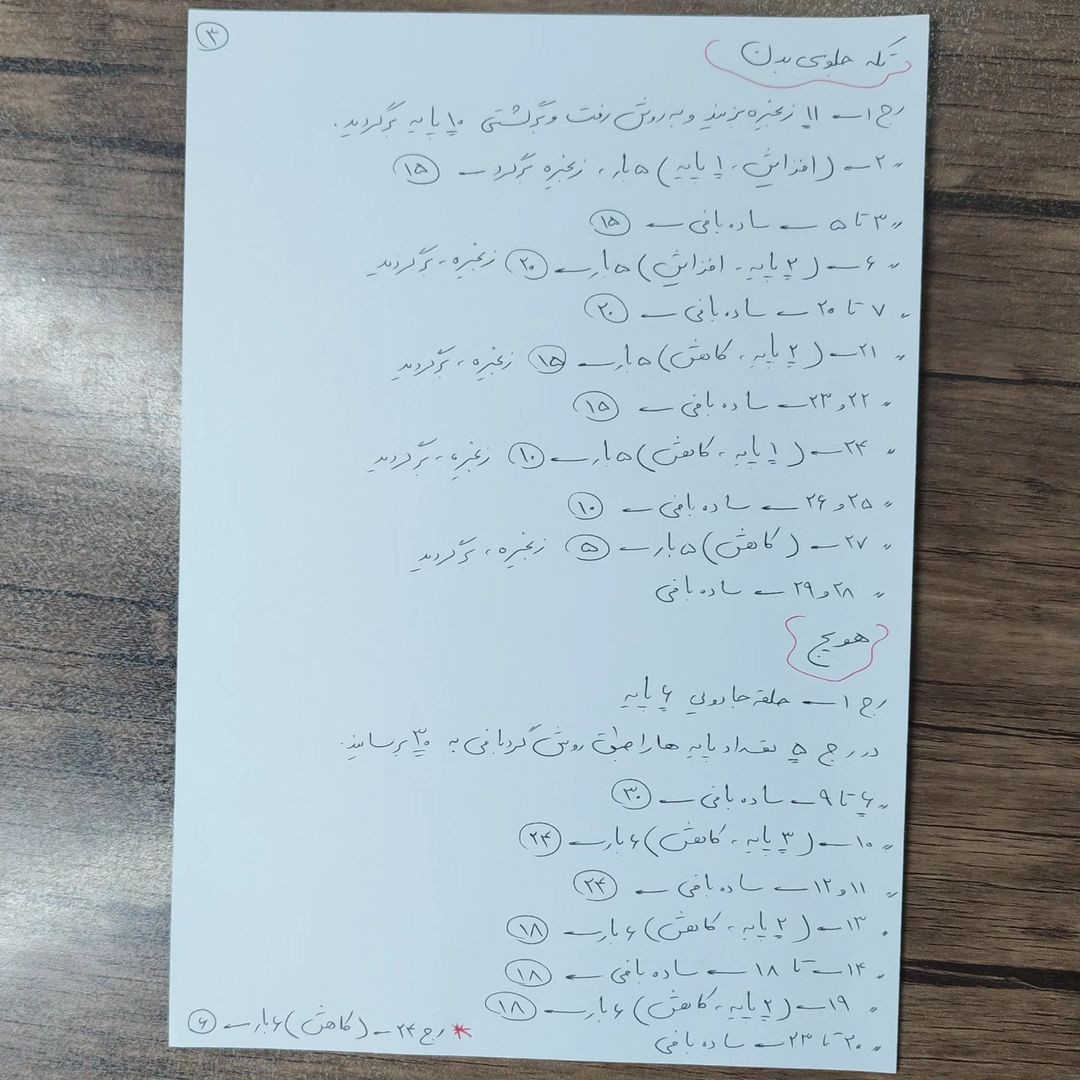 ۳
تکه جلوی بدن
رج ۱ ← ۱۱ زنجیره بزنید و به روش رفت و برگشتی ۱۰ پایه برگردید.
〃 ۲ ← (افزایش، ۱ پایه) ۵ بار، زنجیره برگرد ← ۱۵
〃 ۳ تا ۵ ← ساده بافی ← ۱۵
〃 ۶ ← (۲ پایه، افزایش) ۵ بار ← ۲۰ زنجیره، برگردید
〃 ۷ تا ۲۰ ← ساده بافی ← ۲۰
〃 ۲۱ ← (۲ پایه، کاهش) ۵ بار ← ۱۵ زنجیره، برگردید
〃 ۲۲ و ۲۳ ← ساده بافی ← ۱۵
〃 ۲۴ ← (۱ پایه، کاهش) ۵ بار ← ۱۰ زنجیره، برگردید
〃 ۲۵ و ۲۶ ← ساده بافی ← ۱۰
〃 ۲۷ ← (کاهش) ۵ بار ← ۵ زنجیره، برگردید
〃 ۲۸ و ۲۹ ← ساده بافی
هویج
رج ۱ ← حلقه جادویی ۶ پایه
در رج ۵ تعداد پایه ها را طبق روش گردبافی به ۳۰ برسانید.
〃 ۶ تا ۹ ← ساده بافی ← ۳۰
〃 ۱۰ ← (۳ پایه، کاهش) ۶ بار ← ۲۴
〃 ۱۱ و ۱۲ ← ساده بافی ← ۲۴
〃 ۱۳ ← (۲ پایه، کاهش) ۶ بار ← ۱۸
〃 ۱۴ ← تا ۱۸ ← ساده بافی ← ۱۸
〃 ۱۹ ← (۲ پایه، کاهش) ۶ بار ← ۱۸
〃 ۲۰ تا ۲۳ ← ساده بافی
* رج ۲۴ ← (کاهش) ۶ بار ← ۶